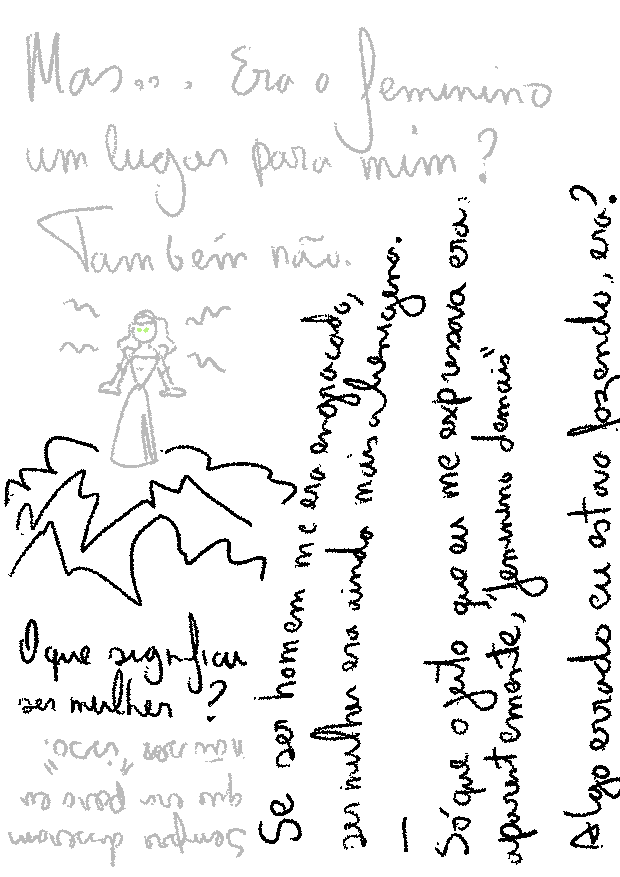 Mas... Era o feminino
um lugar para mim?
Também não.
O que significa
ser mulher?
Sempre disseram
que era para eu
não ser "isso".
Se ser homem me era engraçado,
ser mulher era ainda mais alienígena.
—
Só que o jeito que eu me expressava era,
aparentemente, "feminino demais"
Algo errado eu estava fazendo, era?